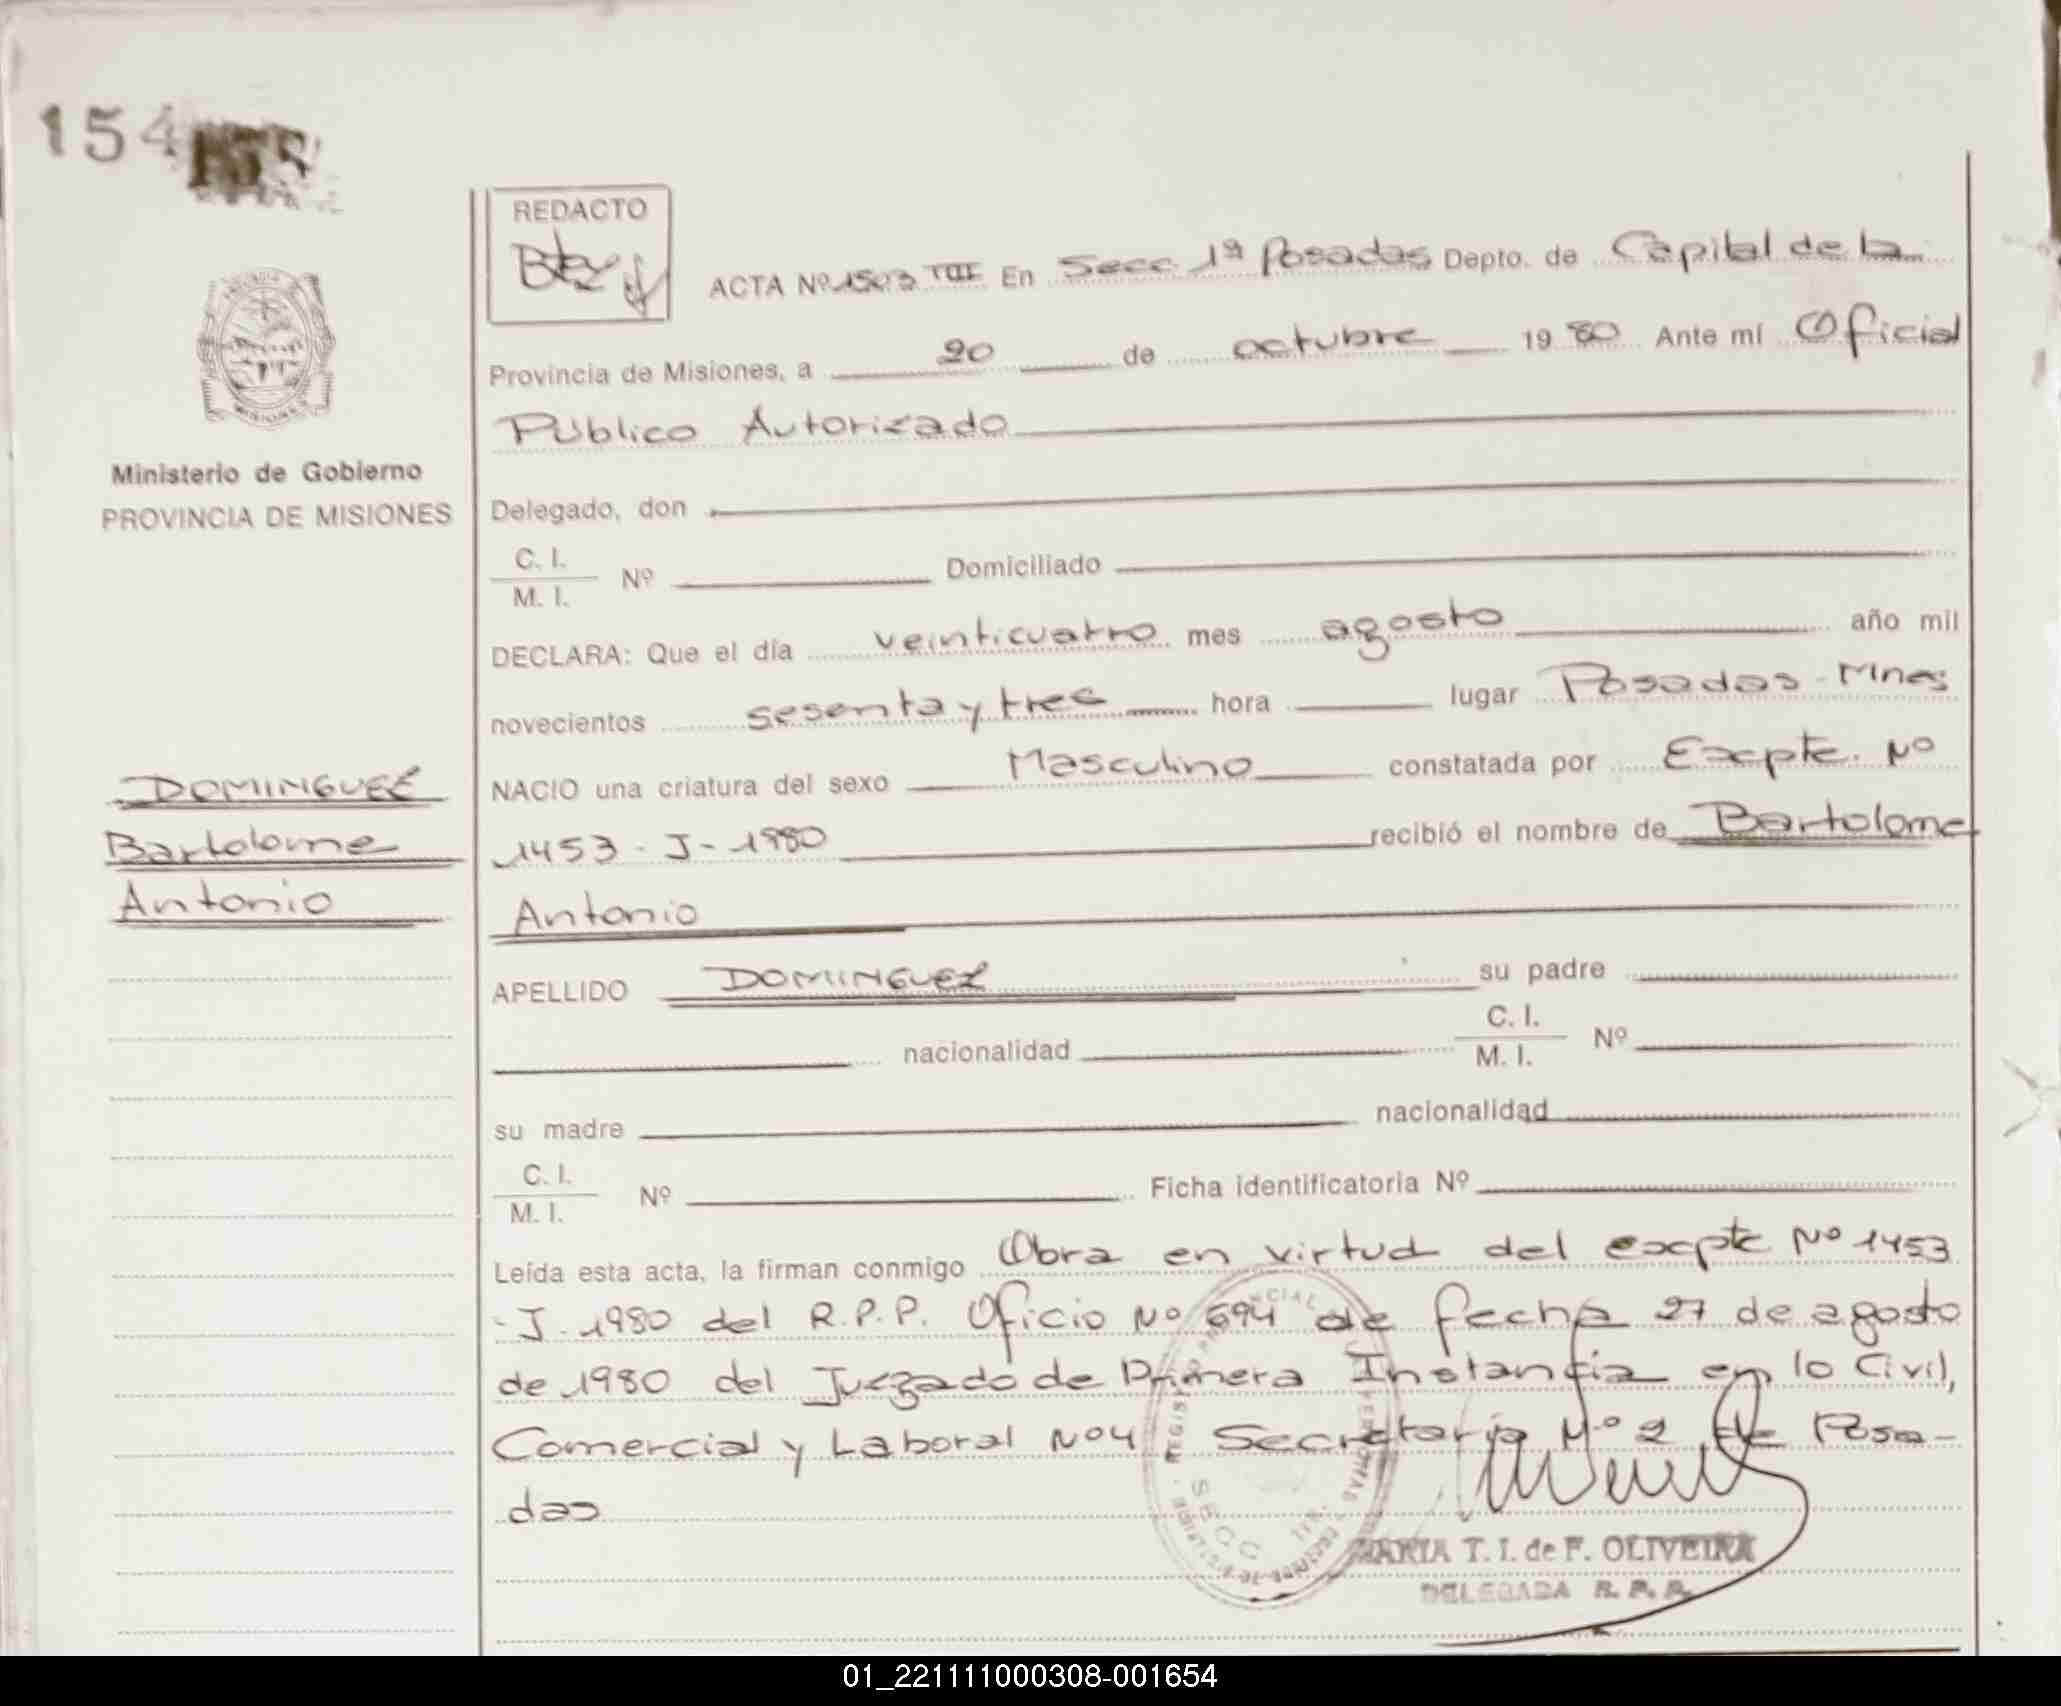 154
REDACTO
ACTA Nº 1503 TIII En Secc 1ª Posadas Depto. de Capital de la
Provincia de Misiones, a 20 de octubre 1980 Ante mí Oficial
Público Autorizado
Ministerio de Gobierno
PROVINCIA DE MISIONES
Delegado, don
C. I.
M. I. Nº Domiciliado
DECLARA: Que el día veinticuatro mes agosto año mil
novecientos sesenta y tres hora lugar Posadas - Mnes
NACIO una criatura del sexo Masculino constatada por Excpte. Nº
1453 - J - 1980 recibió el nombre de Bartolome
Antonio
DOMINGUEZ
Bartolome
Antonio
APELLIDO DOMINGUEZ su padre
nacionalidad C. I.
M. I. Nº
su madre nacionalidad
C. I.
M. I. Nº Ficha identificatoria Nº
Leída esta acta, la firman conmigo Obra en virtud del excpte Nº 1453
- J - 1980 del R.P.P. Oficio Nº 694 de fecha 27 de agosto
de 1980 del Juzgado de Primera Instancia en lo Civil,
Comercial y Laboral Nº 4 Secretaria Nº 2 de Posa-
das
MARIA T. I. de F. OLIVEIRA
DELEGADA R. P. P.
01_221111000308-001654